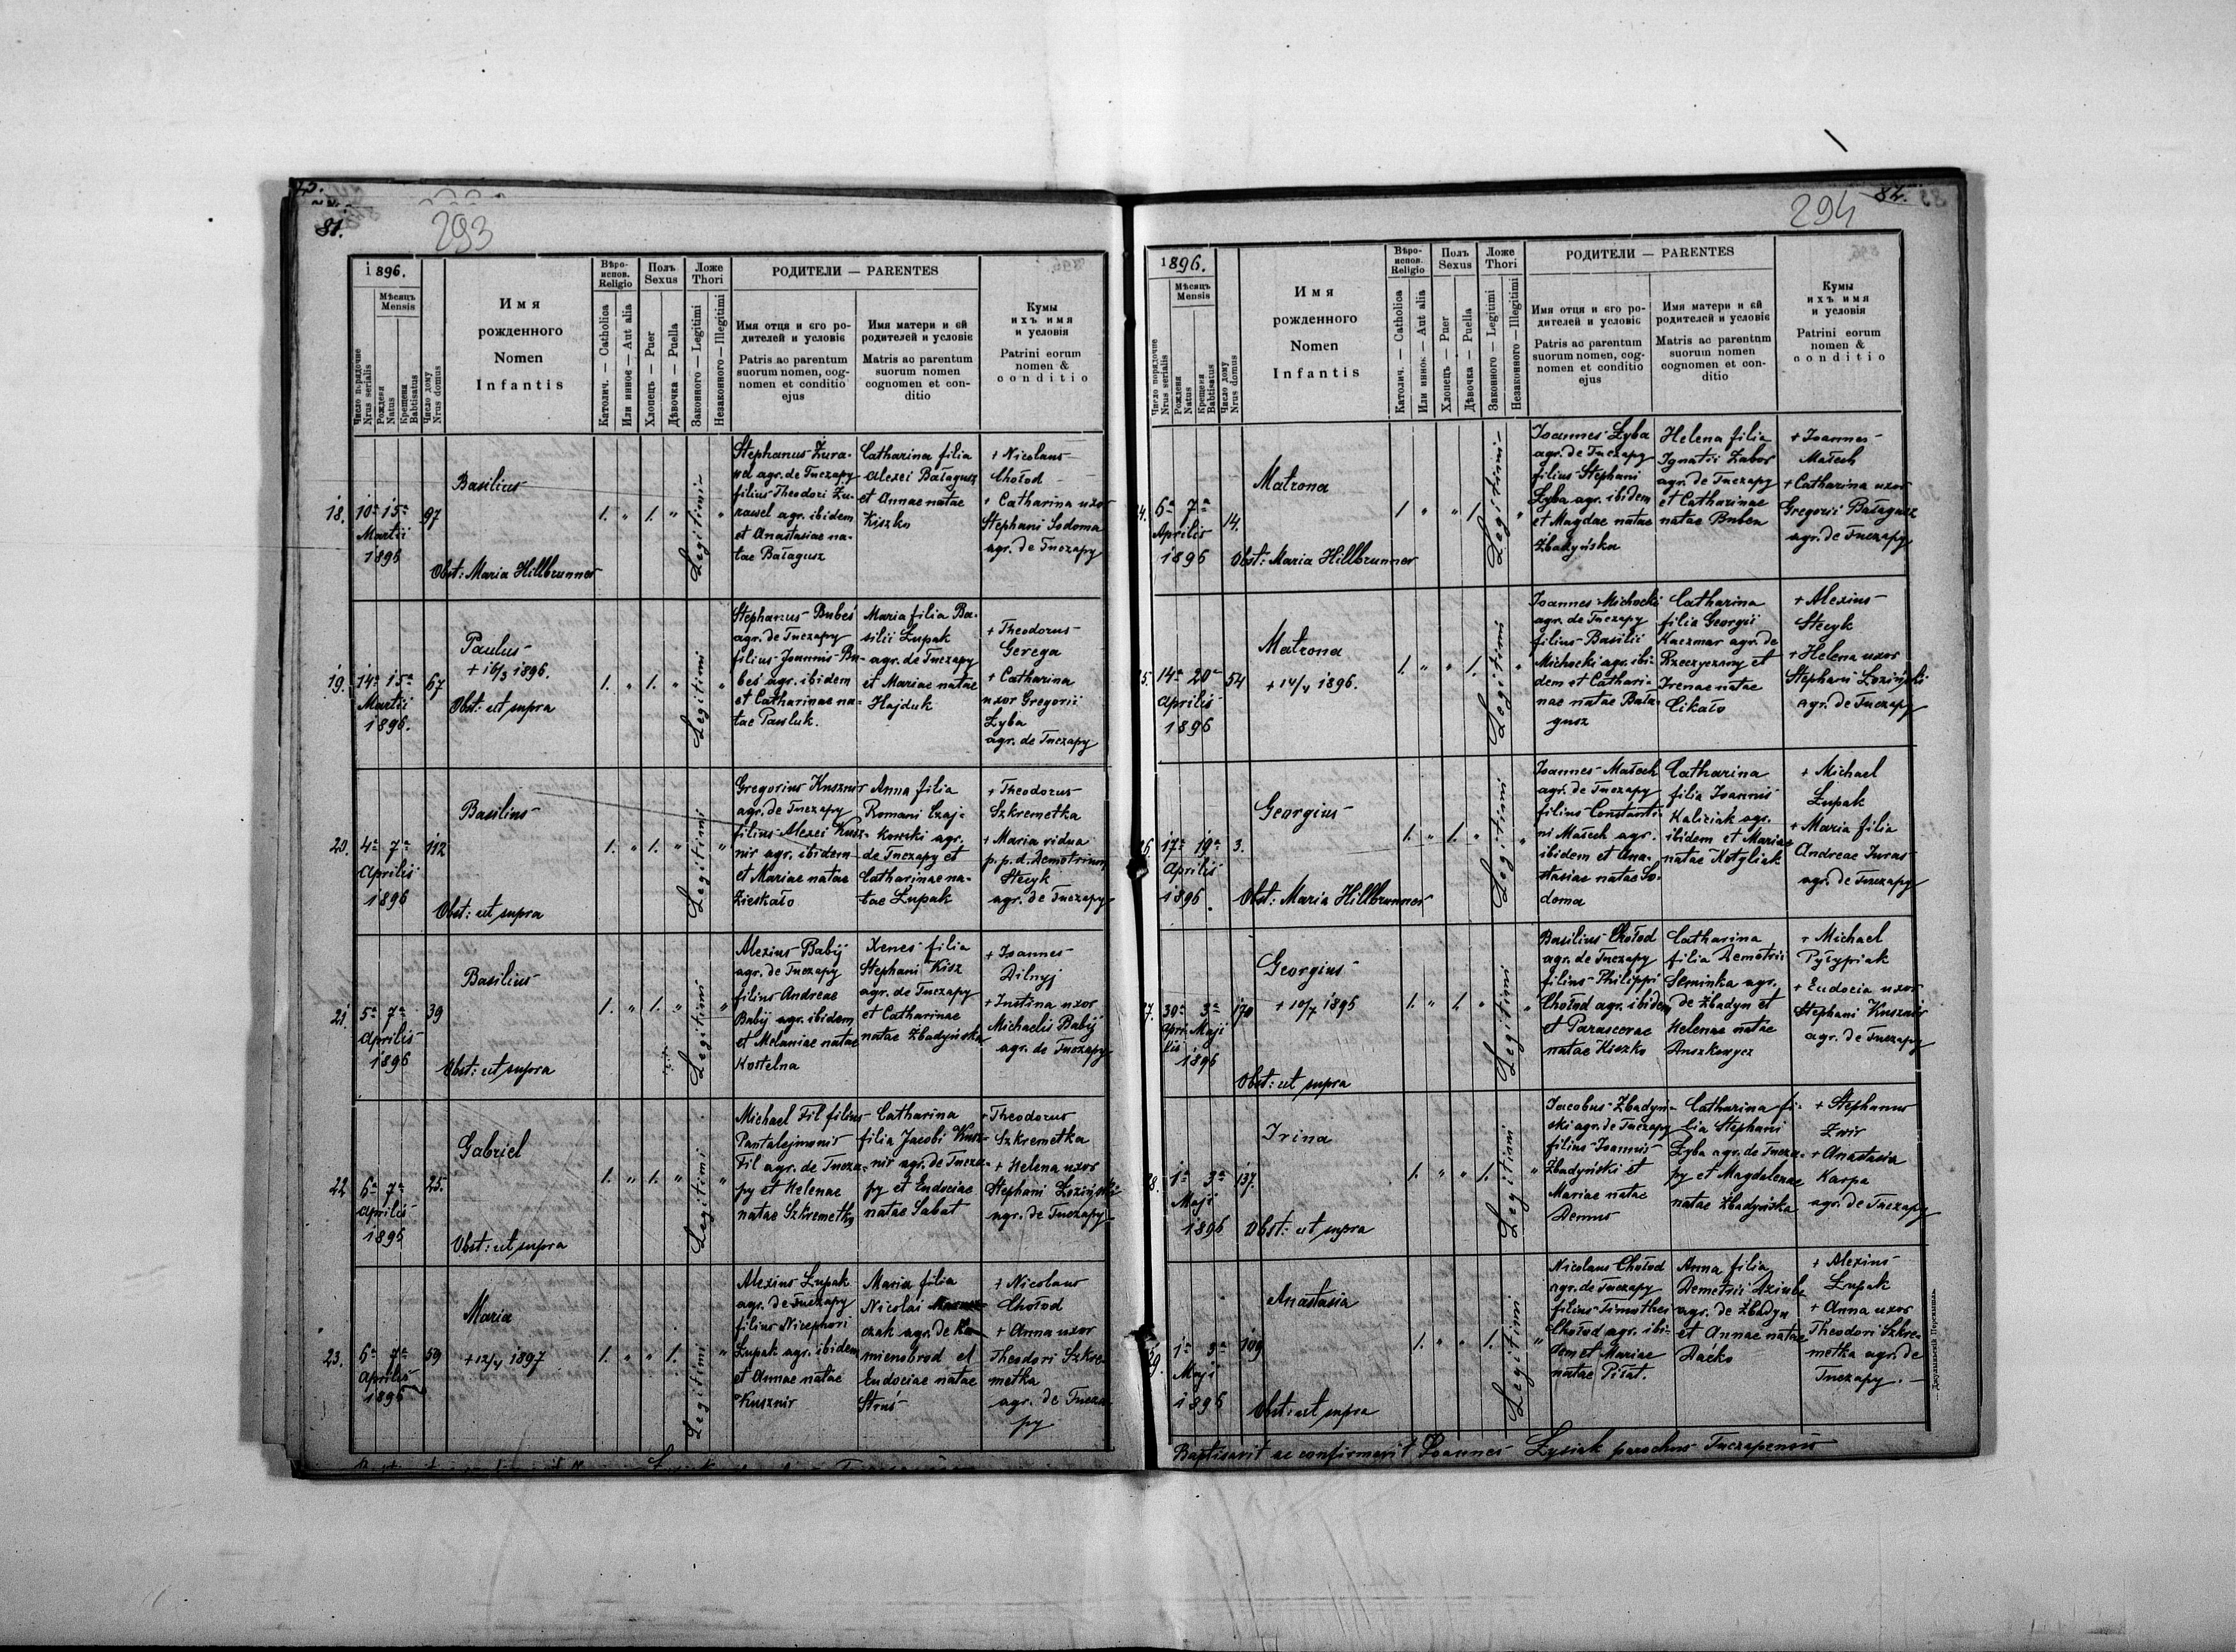 81.
293
1896.
Мѣсяцъ
Mensis
Число порядочне
Nrus serialis
Рожденя
Natus
Крещеня
Babtisatus
Число дому
Nrus domus
Имя
рожденного
Nomen
Infantis
Вѣро-
испов.
Religio
Католич. — Catholica
Или инноє — Aut alia
Полъ
Sexus
Хлопецъ — Puer
Дѣвочка — Puella
Ложе
Thori
Законного — Legitimi
Незаконного — Illegitimi
РОДИТЕЛИ — PARENTES
Имя отця и єго ро-
дителей и условіє
Patris ac parentum
suorum nomen, cog-
nomen et conditio
ejus
Имя матери и єй
родителей и условіє
Matris ac parentum
suorum nomen
cognomen et con-
ditio
Кумы
ихъ имя
и условія
Patrini eorum
nomen &
conditio
18. 10a 15a
Martii
1896
97
Basilius
Obst: Maria Hillbrunner
1. " 1. " Legitimi "
Stephanus Żura-
wel agr. de Tuczapy
filius Theodori Żu-
rawel agr. ibidem
et Anastasiae na-
tae Bałagusz
Catharina filia
Alexei Bałagusz
et Annae natae
Kiszko
+ Nicolaus
Chołod
+ Catharina uxor
Stephani Sodoma
agr. de Tuczapy
19. 14a 15a
Martii
1896.
67
Paulus
+ 16/3 1896.
Obst: ut supra
1. " 1. " Legitimi "
Stephanus Bubeś
agr. de Tuczapy
filius Joannis Bu-
beś agr. ibidem
et Catharinae na-
tae Pawluk.
Maria filia Ba-
silii Łupak
agr. de Tuczapy
et Mariae natae
Hajduk
+ Theodorus
Gerega
+ Catharina
uxor Gregorii
Łyba
agr. de Tuczapy
20. 4a 7a
Aprilis
1896
112
Basilius
Obst: ut supra
1. " 1. " Legitimi "
Gregorius Kusznir
agr. de Tuczapy
filius Alexei Kusz-
nir agr. ibidem
et Mariae natae
Zieskało
Anna filia
Romani Czaj-
kowski agr.
de Tuczapy et
Catharinae na-
tae Łupak
+ Theodorus
Szkremetka
+ Maria vidua
p. p. d. Demetrium
Stecyk
agr. de Tuczapy
21. 5a 7a
Aprilis
1896
39
Basilius
Obst: ut supra
1. " 1. " Legitimi "
Alexius Babij
agr. de Tuczapy
filius Andreae
Babij agr. ibidem
et Melaniae natae
Kostelna
Xenes filia
Stephani Kisz
agr. de Tuczapy
et Catharinae
natae Zbadyńska
+ Joannes
Dilnyj
+ Justina uxor
Michaelis Babij
agr. de Tuczapy
22 6a 7a
Aprilis
1896
25.
Gabriel
Obst: ut supra
1. " 1. " Legitimi "
Michael Fil filius
Pantalejmonis
Fil agr. de Tucza-
py et Helenae
natae Szkremetka
Catharina
filia Jacobi Kusz-
nir agr. de Tucza-
py et Eudociae
natae Sabat
+ Theodorus
Szkremetka
+ Helena uxor
Stephani Łoziński
agr. de Tuczapy
23. 6a 7a
Aprilis
1896
59
Maria
+ 12/4 1897
1. " " 1. Legitimi "
Alexius Łupak
agr. de Tuczapy
filius Nicephori
Łupak agr. ibidem
et Annae natae
Kusznir
Maria filia
Nicolai
czak agr. de Ka-
mienobrod et
Eudociae natae
Struś
+ Nicolaus
Chołod
+ Anna uxor
Theodori Szkre-
metka
agr. de Tucza-
py
82.
294
1896.
Мѣсяцъ
Mensis
Число порядочне
Nrus serialis
Рожденя
Natus
Крещеня
Babtisatus
Число дому
Nrus domus
Имя
рожденного
Nomen
Infantis
Вѣро-
испов.
Religio
Католич. — Catholica
Или инноє — Aut alia
Полъ
Sexus
Хлопецъ — Puer
Дѣвочка — Puella
Ложе
Thori
Законного — Legitimi
Незаконного — Illegitimi
РОДИТЕЛИ — PARENTES
Имя отця и єго ро-
дителей и условіє
Patris ac parentum
suorum nomen, cog-
nomen et conditio
ejus
Имя матери и єй
родителей и условіє
Matris ac parentum
suorum nomen
cognomen et con-
ditio
Кумы
ихъ имя
и условія
Patrini eorum
nomen &
conditio
4. 6a 7a
Aprilis
1896
14.
Matrona
Obst: Maria Hillbrunner
1. " " 1. Legitimi "
Joannes Łyba
agr. de Tuczapy
filius Stephani
Łyba agr. ibidem
et Magdae natae
Zbadyńska
Helena filia
Ignatii Zabor
agr. de Tuczapy
et Catharinae
natae Buben
+ Joannes
Małech
+ Catharina uxor
Gregorii Bałagusz
agr. de Tuczapy
5. 14a 20a
Aprilis
1896
54
Matrona
+ 14/4 1896.
1. " " 1. Legitimi "
Joannes Michocki
agr. de Tuczapy
filius Basilii
Michocki agr. ibi-
dem et Cathari-
nae natae Bała-
gusz
Catharina
filia Georgii
Kaczmar agr. de
Rzeczyczany et
Irenae natae
Cikało
+ Alexius
Stecyk
+ Helena uxor
Stephani Łoziński
agr. de Tuczapy
26. 17a 19a
Aprilis
1896.
3.
Georgius
Obst: Maria Hillbrunner
1. " 1. " Legitimi "
Joannes Małech
agr. de Tuczapy
filius Constanti-
ni Małech agr.
ibidem et Ana-
stasiae natae So-
doma
Catharina
filia Joannis
Kaliciak agr.
ibidem et Mariae
natae Kotyliak
+ Michael
Łupak
+ Maria filia
Andreae Juras
agr. de Tuczapy
7. 30a 3a
Apri- Maji
lis
1896
170
Georgius
+ 10/7 1896
Obst: ut supra
1. " 1. " Legitimi "
Basilius Chołod
agr. de Tuczapy
filius Philippi
Chołod agr. ibidem
et Parascevae
natae Kiszko
Catharina
filia Demetrii
Seminka agr.
de Zbadyn et
Helenae natae
+ Michael
+ Eudocia uxor
Stephani Kusznir
agr. de Tuczapy
8. 1a 3a
Maji
1896
137.
Irina
Obst: ut supra
1. " " 1. Legitimi "
Jacobus Zbadyń-
ski agr. de Tuczapy
filius Joannis
Zbadyński et
Mariae natae
Demus
Catharina fi-
lia Stephani
Łyba agr. de Tucza-
py et Magdalenae
natae Zbadyńska
+ Stephanus
Zwir
+ Anastasia
Karpa
agr. de Tuczapy
29. 1a 3a
Maji
1896
109
Anastasia
Obst: ut supra
1. " " 1. Legitimi "
Nicolaus Chołod
agr. de Tuczapy
filius Timothei
Chołod agr. ibi-
dem et Mariae
natae Piłat.
Anna filia
Demetrii Dziuba
agr. de Zbadyn
et Annae natae
Daćko
+ Alexius
Łupak
+ Anna uxor
Theodori Szkre-
metka agr. de
Tuczapy.
Baptisavit ac confirmavit Joannes Łysiak parochus Tuczapensis